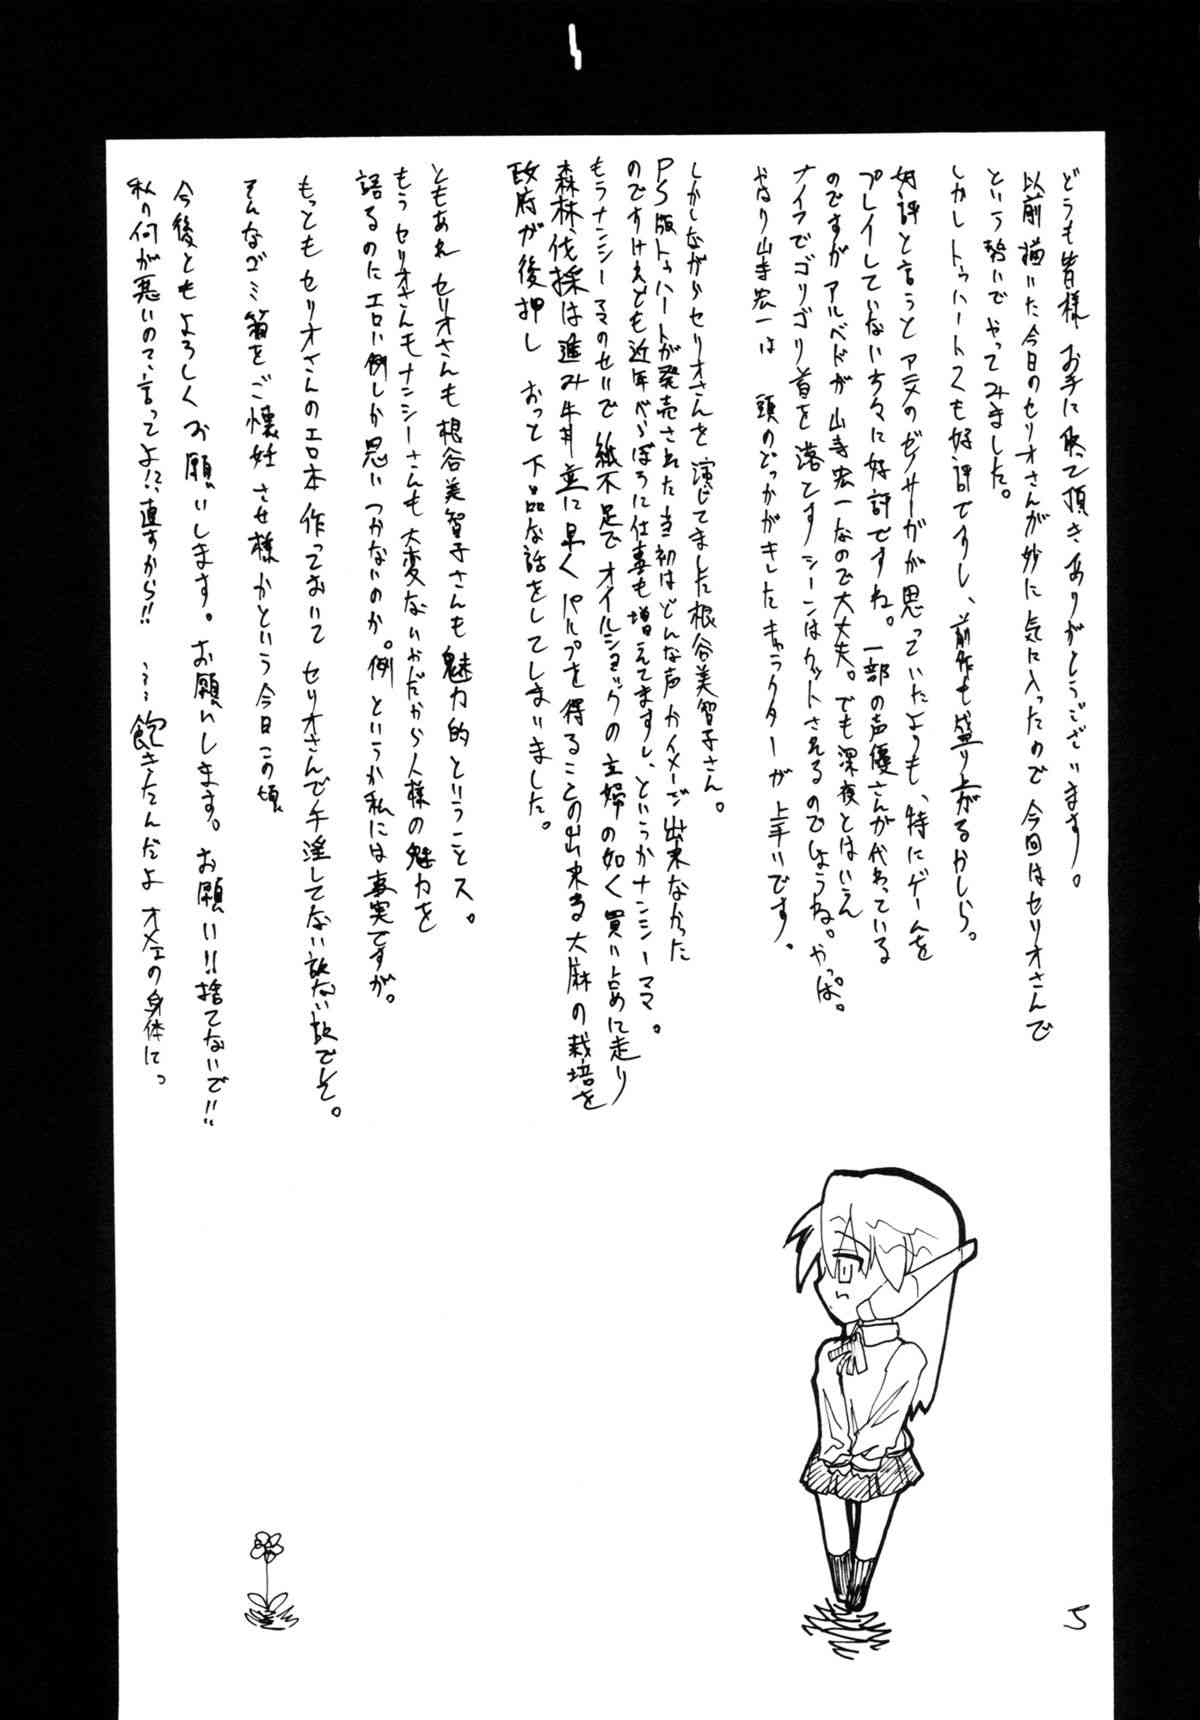 どうも皆様 お手に取って頂きありがとうございます。
以前描いた今日のセリオさんが妙に気に入ったので今回はセリオさんで
という勢いでやってみました。
しかしトゥハート2も好評ですし、前作も盛り上がるかしら。
好評と言うとアニメのゼノサーガが思っていたよりも、特にゲームを
プレイしていない方々に好評ですね。一部の声優さんが代わっている
のですがアルベドが山寺宏一なので大丈夫。でも深夜とはいえ
ナイフでゴリゴリ首を落とすシーンはカットされるのでしょうね。やっぱ。
やはり山寺宏一は 頭のどっかがキレたキャラクターが上手いです。
しかしながらセリオさんを演じてました根谷美智子さん。
PS版トゥハートが発売された当初はどんな声かイメージ出来なかった
のですけれども近年べらぼうに仕事も増えてますし、というかナンシーママ。
もうナンシーママのせいで紙不足でオイルショックの主婦の如く買い占めに走り
森林伐採は進み牛丼並に早くパルプを得ることの出来る大麻の栽培を
政府が後押し おっと下品な話をしてしまいました。
ともあれセリオさんも根谷美智子さんも魅力的ということス。
もうセリオさんもナンシーさんも大変ないかだから人様の魅力を
語るのにエロい例しか思いつかないのか。例というか私には事実ですが。
もっともセリオさんのエロ本作っておいてセリオさんで手淫してない訳ない訳でして。
そんなゴミ箱をご懐妊させ様かという今日この頃
今後ともよろしくお願いします。お願いします。お願い!!捨てないで!!
私の何が悪いの、言ってよ!?、直すから!! ……飽きたんだよオメェの身体にっ
5